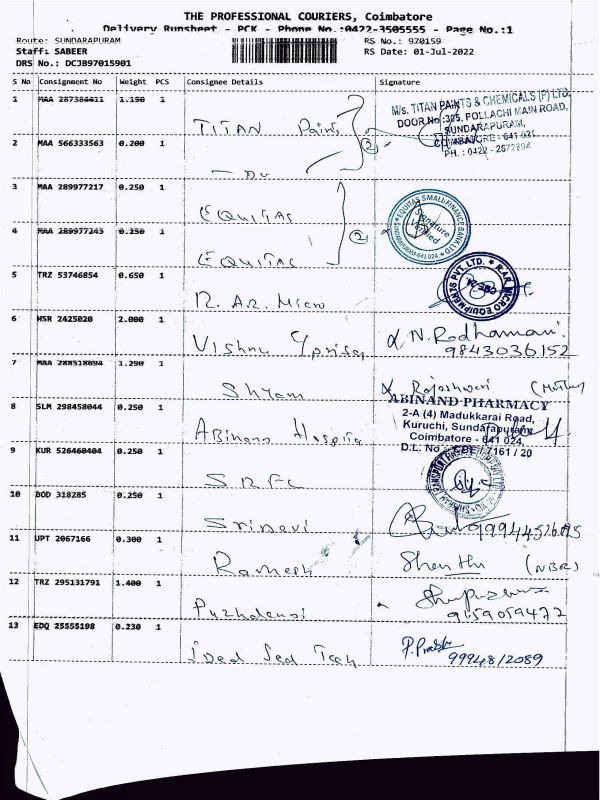 THE PROFESSIONAL COURIERS, Coimbatore
Delivery Runsheet - PCK - Phone No.:0422-3505555 - Page No.:1
Route: SUNDARAPURAM
RS No.: 970159
Staff: SABEER
RS Date: 01-Jul-2022
DRS No.: DCJB97015901
S No Consignment No Weight PCS Consignee Details Signature
1 MAA 287384411 1.190 1 TITAN Paint
M/s. TITAN PAINTS & CHEMICALS (P) LTD.
DOOR No :305, POLLACHI MAIN ROAD,
SUNDARAPURAM,
COIMBATORE - 641 021.
PH. : 0422 - 2672804
2 MAA 566333563 0.200 1 - Do
3 MAA 289977217 0.250 1 EQUITAS
4 MAA 289977243 0.250 1 EQUITAS
EQUITAS SMALL FINANCE BANK LTD
Signature Verified
5 TRZ 53746854 0.650 1 R. AR. Micro
R.AR. MICRO EQUIPMENTS PVT. LTD.
6 HSR 2425020 2.000 1 Vishnu
N. Radhamani
9843036152
7 MAA 288518094 1.290 1 Shram
Rajeshwari
8 SLM 298458044 0.250 1 Abinand Hospital
ABINAND PHARMACY
2-A (4) Madukkarai Road,
Kuruchi, Sundarapuram,
Coimbatore - 641 024.
D.L. No : CBE / 7161 / 20
9 KUR 526460404 0.250 1 SRFC
10 BOD 318285 0.250 1 Sridevi
11 UPT 2067166 0.300 1 Ramesh
Shanthi (NBR)
12 TRZ 295131791 1.400 1
9159059477
13 EDQ 25555198 0.230 1 Ideal Sed Tech
9994812089